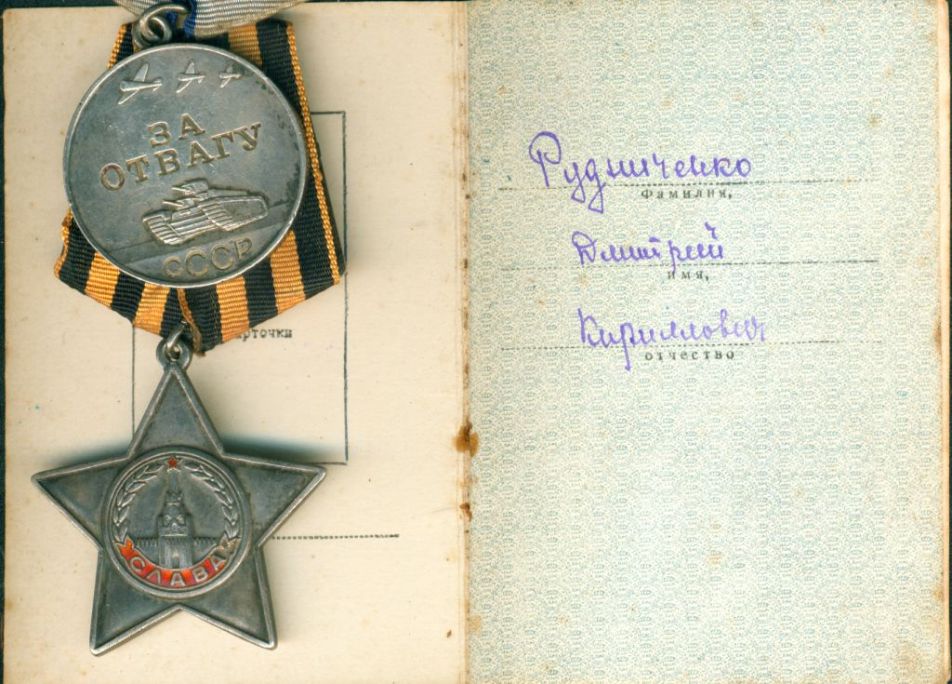 ЗА
ОТВАГУ
СССР
рточки
СЛАВА
Рудниченко
Фамилия,
Дмитрий
имя,
Кириллович
отчество